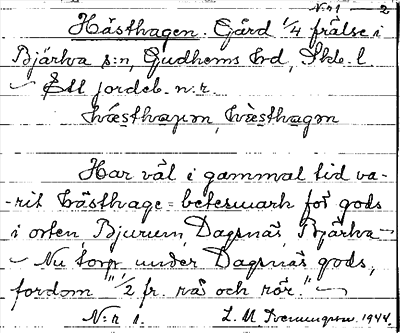 N:r 1 — 2
Hästhagen. Gård 1/4 frälse i
Bjärka s:n, Gudhems hd, Skbl. l.
Ett jordeb. n.r.
Har väl i gammal tid va-
-rit hästhage = betesmark för gods
i orten, Bjurum, Dagsnäs, Bjärka —
— Nu torp under Dagsnäs gods,
fordom "1/2 fr. rå och rör." —
N:r 1. L. M. Svenungson 1944.